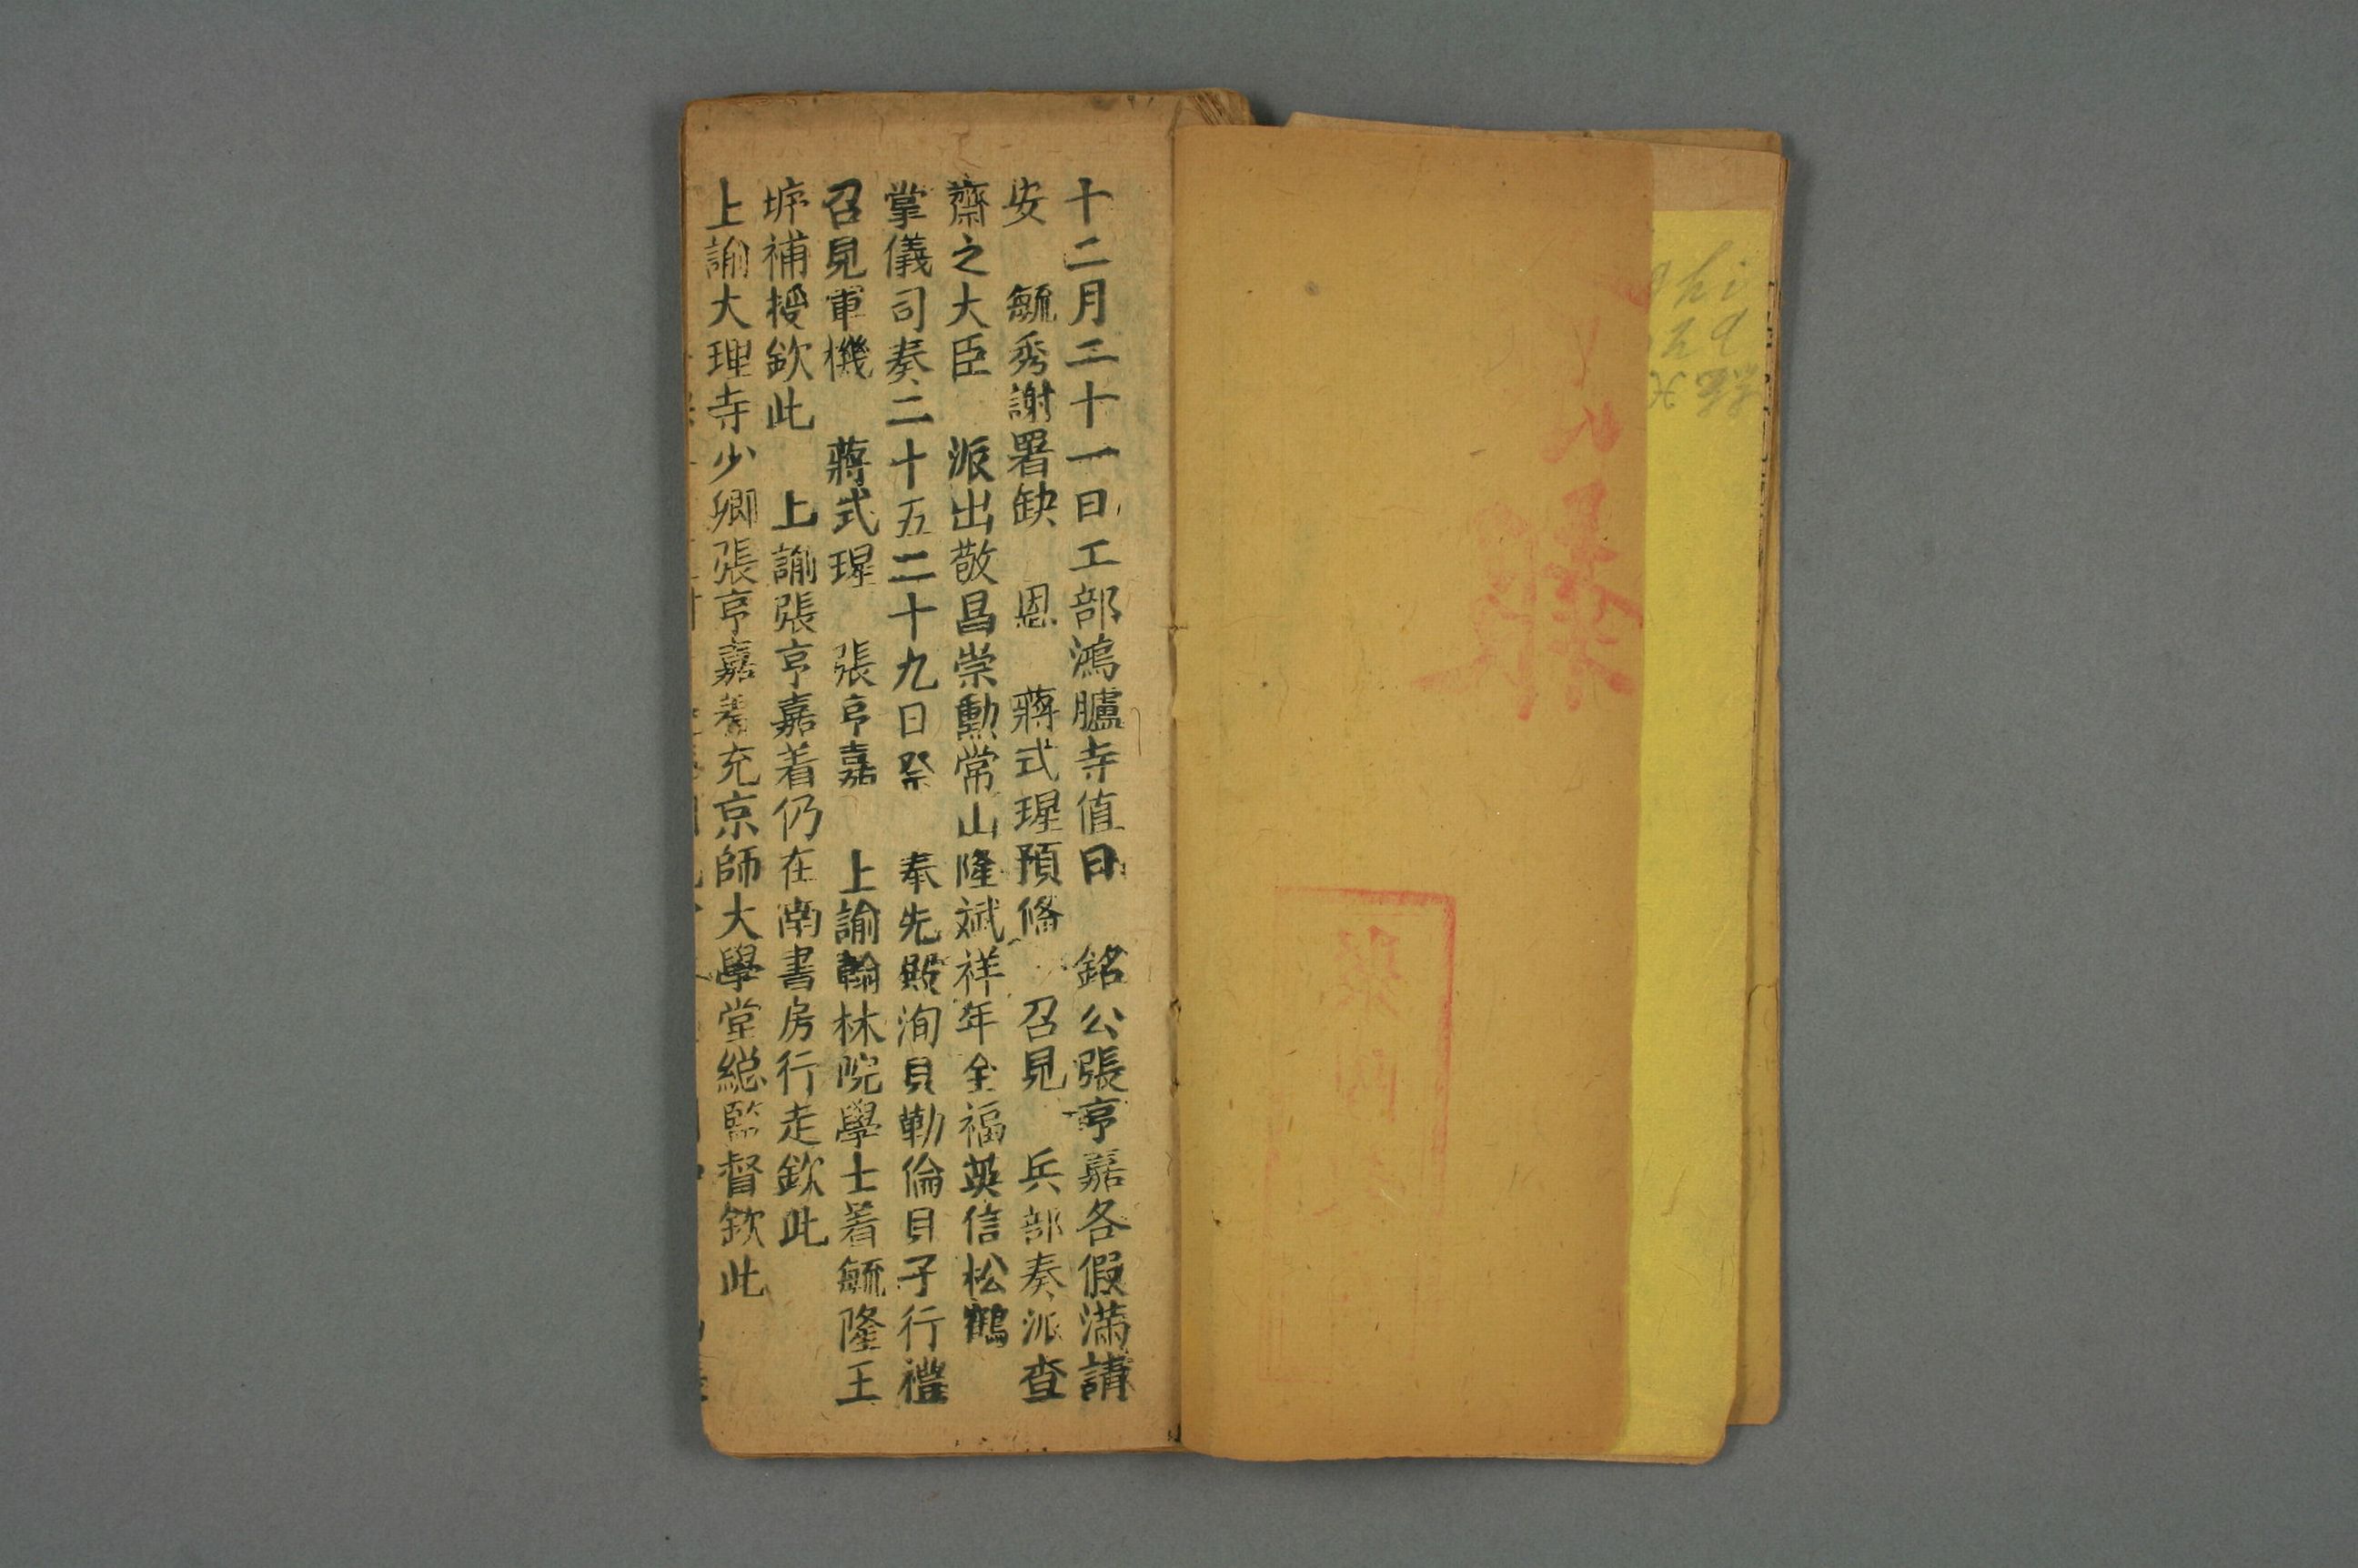 十二月二十一日工部鴻臚寺值日　銘公張亨嘉各假滿請
安　毓秀謝署缺　恩　蔣式瑆預備　召見　兵部奏派查
齋之大臣　派出敬昌崇勳常山隆斌祥年全福英信松鶴
掌儀司奏二十五二十九日祭　奉先殿洵貝勒倫貝子行禮
召見軍機　蔣式瑆　張亨嘉　上諭翰林院學士着毓隆王
垿補授欽此　上諭張亨嘉着仍在南書房行走欽此
上諭大理寺少卿張亨嘉着充京師大學堂総監督欽此